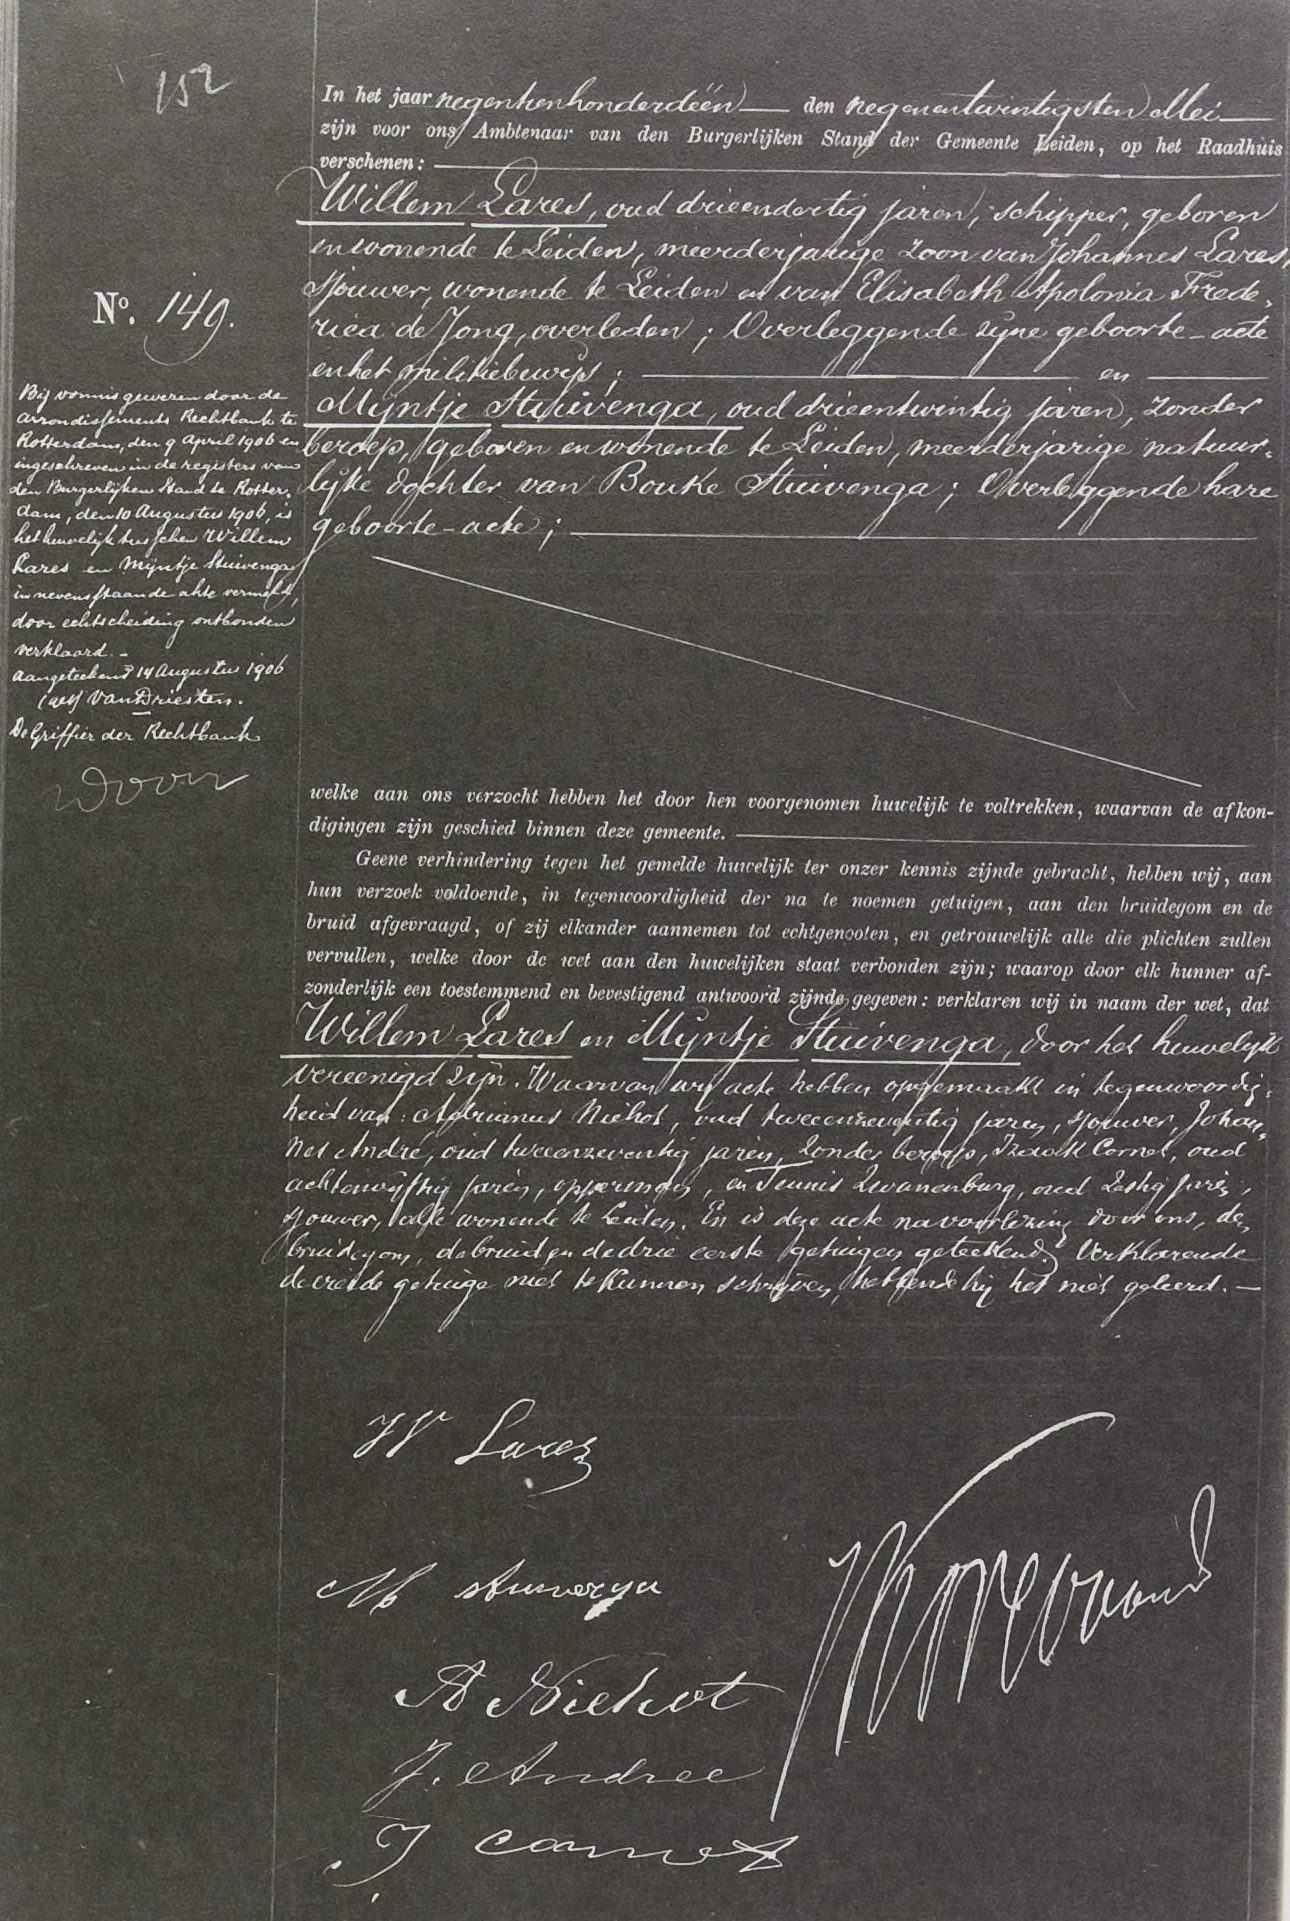 152
In het jaar negentienhonderdeën den negenentwintigsten Mei
zijn voor ons Ambtenaar van den Burgerlijken Stand der Gemeente Leiden, op het Raadhuis
verschenen:
Willem Lares, oud drieendertig jaren, schipper, geboren
en wonende te Leiden, meerderjarige zoon van Johannes Lares,
sjouwer, wonende te Leiden en van Elisabeth Apolonia Frede-
rica de Jong, overleden; Overleggende zijne geboorte-acte
en het militiebewijs; en
Mijntje Stuivenga, oud drieentwintig jaren, zonder
beroep, geboren en wonende te Leiden, meerderjarige natuur-
lijke dochter van Bouke Stuivenga; Overleggende hare
geboorte-acte;
No. 149.
Bij vonnis gewezen door de
arrondissements Rechtbank te
Rotterdam, den 9 April 1906 en
ingeschreven in de registers van
den Burgerlijken Stand te Rotter-
dam, den 10 Augustus 1906, is
het huwelijk tusschen Willem
Lares en Mijntje Stuivenga
in nevenstaande akte vermeld,
door echtscheiding ontbonden
verklaard.-
Aangeteekend 14 Augustus 1906
van Driesten.
De Griffier der Rechtbank
welke aan ons verzocht hebben het door hen voorgenomen huwelijk te voltrekken, waarvan de afkon-
digingen zijn geschied binnen deze gemeente.
Geene verhindering tegen het gemelde huwelijk ter onzer kennis zijnde gebracht, hebben wij, aan
hun verzoek voldoende, in tegenwoordigheid der na te noemen getuigen, aan den bruidegom en de
bruid afgevraagd, of zij elkander aannemen tot echtgenooten, en getrouwelijk alle die plichten zullen
vervullen, welke door de wet aan den huwelijken staat verbonden zijn; waarop door elk hunner af-
zonderlijk een toestemmend en bevestigend antwoord zijnde gegeven: verklaren wij in naam der wet, dat
Willem Lares en Mijntje Stuivenga, door het huwelijk
vereenigd zijn. Waarvan wij acte hebben opgemaakt in tegenwoordig-
heid van: Adrianus Niekot, oud tweeenzeventig jaren, sjouwer, Johan-
nes André, oud tweeenzeventig jaren, zonder beroep, Izaäk Cornet, oud
achtenvijftig jaren, opperman, en Teunis Zwanenburg, oud zestig jaren,
sjouwer, alle wonende te Leiden. En is deze acte na voorlezing door ons, den
bruidegom, de bruid en de drie eerste getuigen geteekend; Verklarende
de vierde getuige niet te kunnen schrijven, hebbende hij het niet geleerd.
W Lares
M Stuivenga
A Niekot
J. Andree
J Cornet